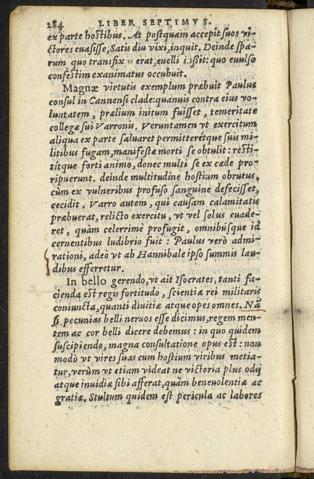 284 LIBER SEPTIMVS.
ex parte hostibus. At postquam accepit suos vi-
ctores euasisse, Satis diu vixi, inquit. Deinde spa-
rum quo transfix erat, euelli iußit: quo euulso
confestim exanimatus occubuit.
Magnæ virtutis exemplum præbuit Paulus
consul in Cannensi clade: quanuis contra eius vo-
luntatem, prælium initum fuisset, temeritate
collegæ sui Varronis. Veruntamen vt exercitum
aliqua ex parte saluaret permitteretque suis mi-
litibus fugam, manifestæ morti se obtulit: resti-
titque forti animo, donec multi se ex cæde pro-
ripuerunt. deinde multitudine hostium obrutus,
cùm ex vulneribus profuso sanguine defecisset,
cecidit. Varro autem, qui causam calamitatis
præbuerat, relicto exercitu, vt vel solus euade-
ret, quàm celerrimè profugit, omnibúsque id
cernentibus ludibrio fuit: Paulus verò admi-
rationi, adeò vt ab Hannibale ipso summis lau-
dibus efferretur.
In bello gerendo, vt ait Isocrates, tanti fa-
cienda est regis fortitudo, scientiæ rei militaris
coniuncta, quanti diuitiæ atque opes omnes. Nã
si pecunias belli neruos esse dicimus, regem men-
tem ac cor belli dicere debemus: in quo quidem
suscipiendo, magna consultatione opus est: non
modò vt vires suas cum hostium viribus metia-
tur, verùm vt etiam videat ne victoria plus odij
atque inuidiæ sibi afferat, quàm beneuolentiæ ac
gratiæ. Stultum quidem est pericula ac labores